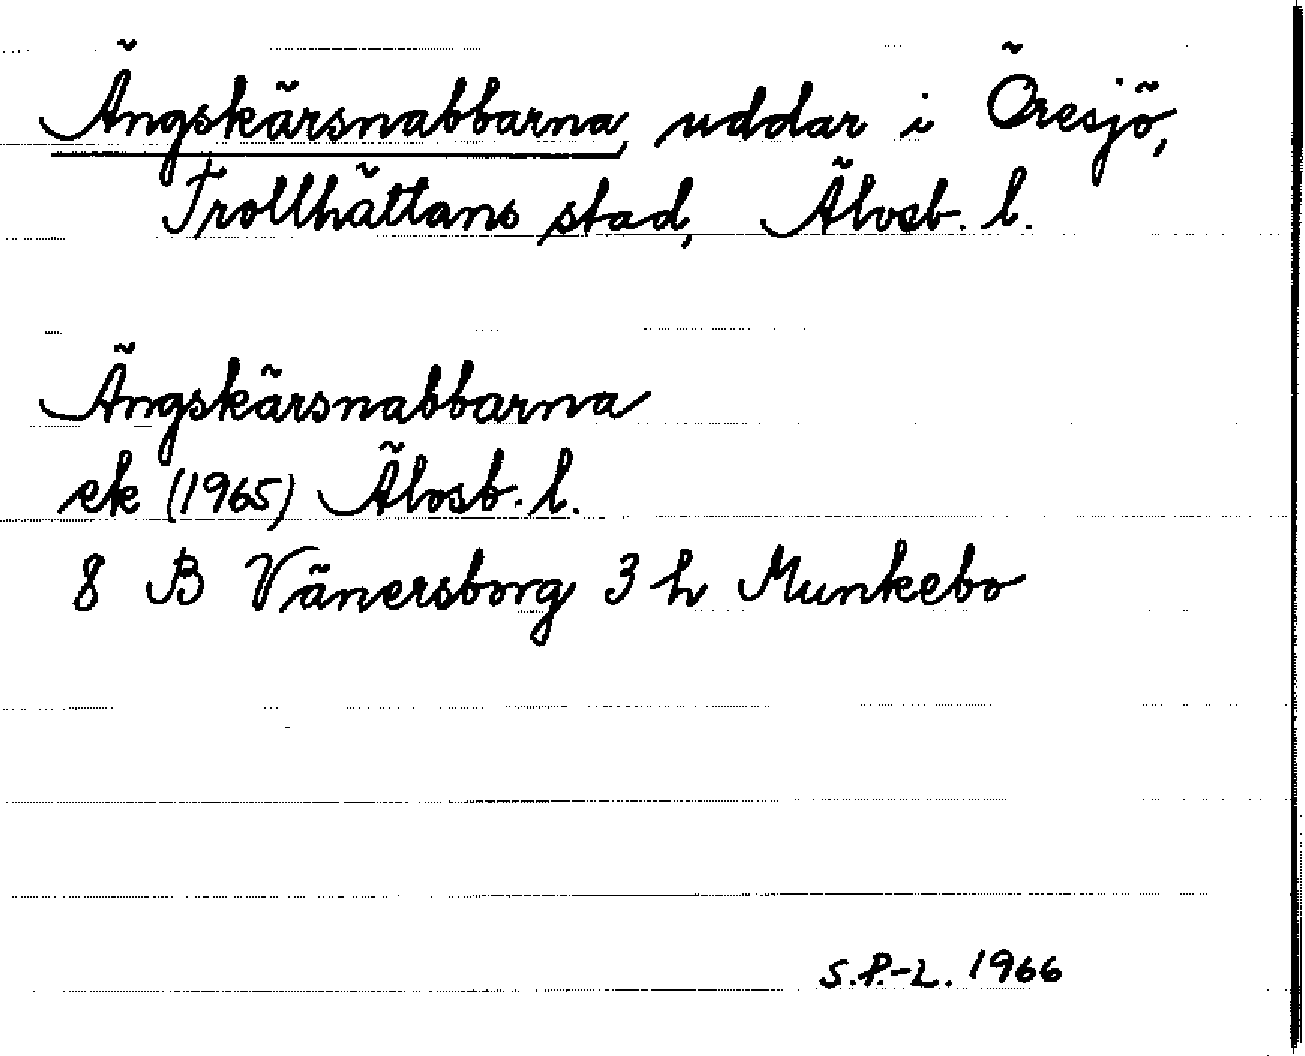 Ängskärsnabbarna, uddar i Öresjö,
Trollhättans stad, Älvsb. l.
Ängskärsnabbarna
ek (1965) Älvsb. l.
8 B Vänersborg 3 h Munkebo
S.P.-L. 1966